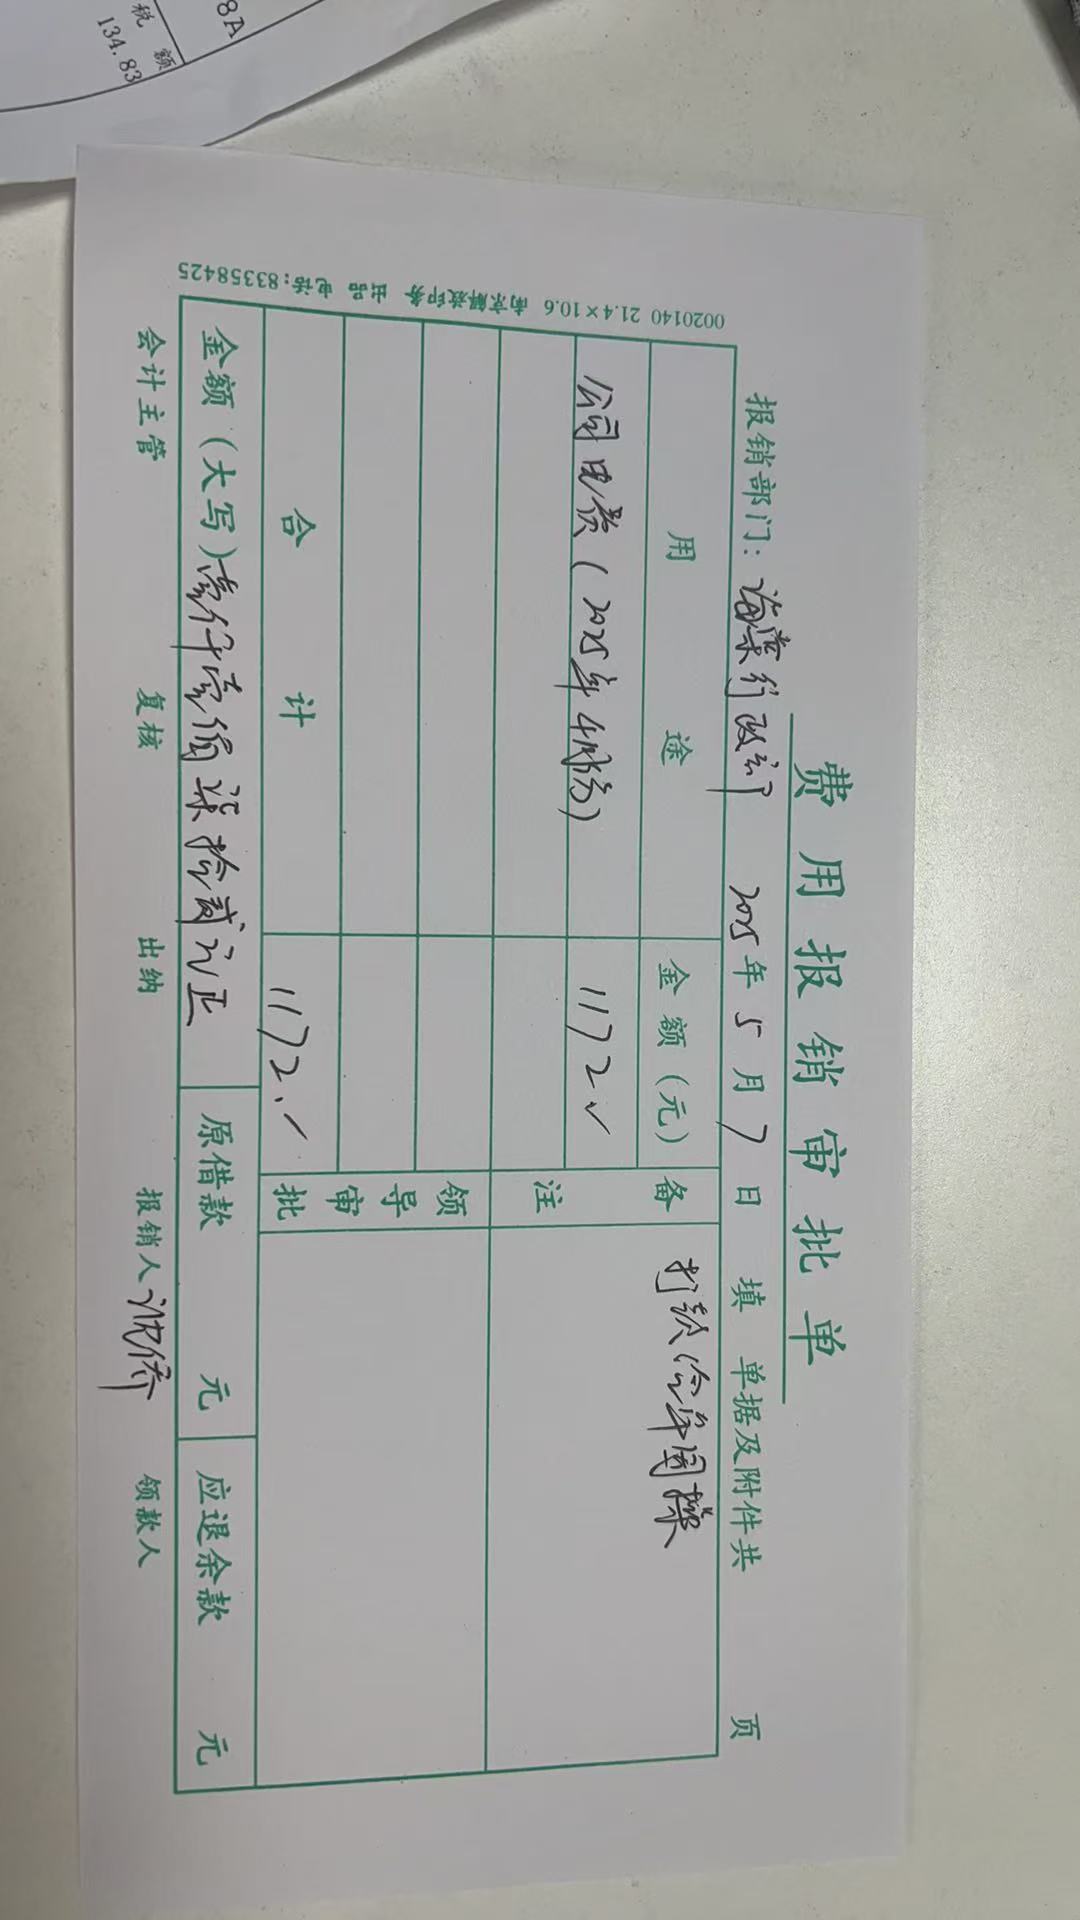 费用报销审批单
报销部门：海棠行政部 2025年5月7日 填 单据及附件共 页
用 途 金额（元） 备注
公司电费（2025年4月份） 1172 ✓ 打款给年国樑
合 计 1172. ✓ 领导审批
金额（大写）壹仟壹佰柒拾贰元正 原借款 元 应退余款 元
会计主管 复核 出纳 报销人 领款人
0020140 21.4×10.6 南京解放印务 出品 电话：83358425
8A
税 额
134.83